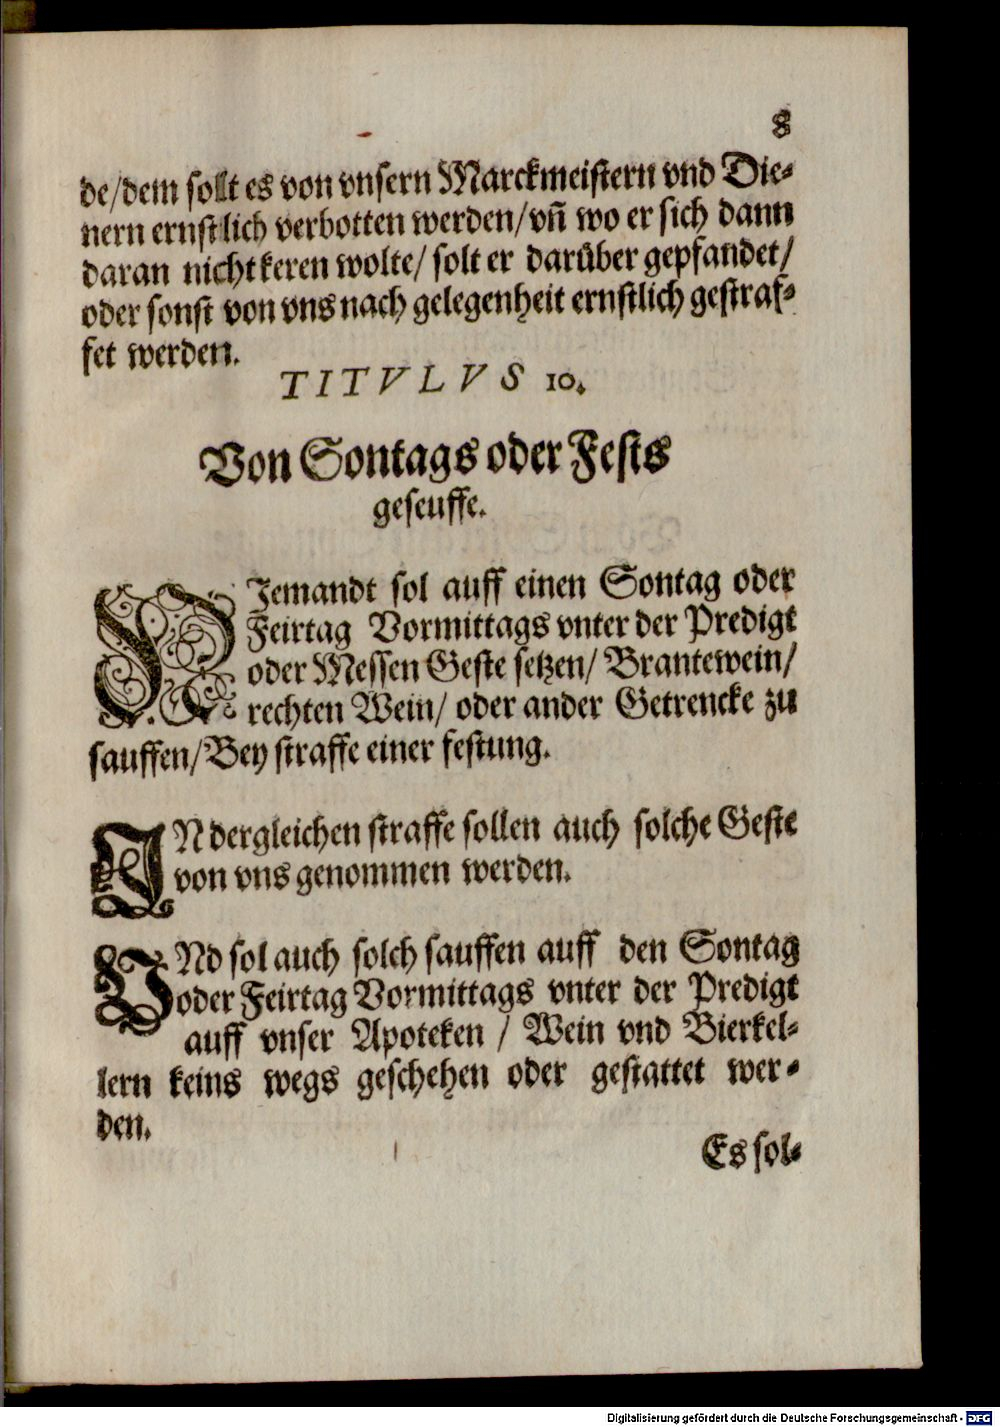 8
de/dem sollt es von vnsern Marckmeistern vnd Die-
nern ernstlich verbotten werden/vñ wo er sich dann
daran nicht keren wolte/ solt er darüber gepfandet/
oder sonst von vns nach gelegenheit ernstlich gestraf-
fet werden.
TITVLVS 10.
Von Sontags oder Fests
geseuffe.
NJemandt sol auff einen Sontag oder
Feirtag Vormittags vnter der Predigt
oder Messen Geste setzen/ Brantewein/
rechten Wein/ oder ander Getrencke zu
sauffen/Bey straffe einer festung.
IN dergleichen straffe sollen auch solche Geste
von vns genommen werden.
VNd sol auch solch sauffen auff den Sontag
oder Feirtag Vormittags vnter der Predigt
auff vnser Apoteken / Wein vnd Bierkel-
lern keins wegs geschehen oder gestattet wer-
den.
Es sol-
Digitalisierung gefördert durch die Deutsche Forschungsgemeinschaft - DFG